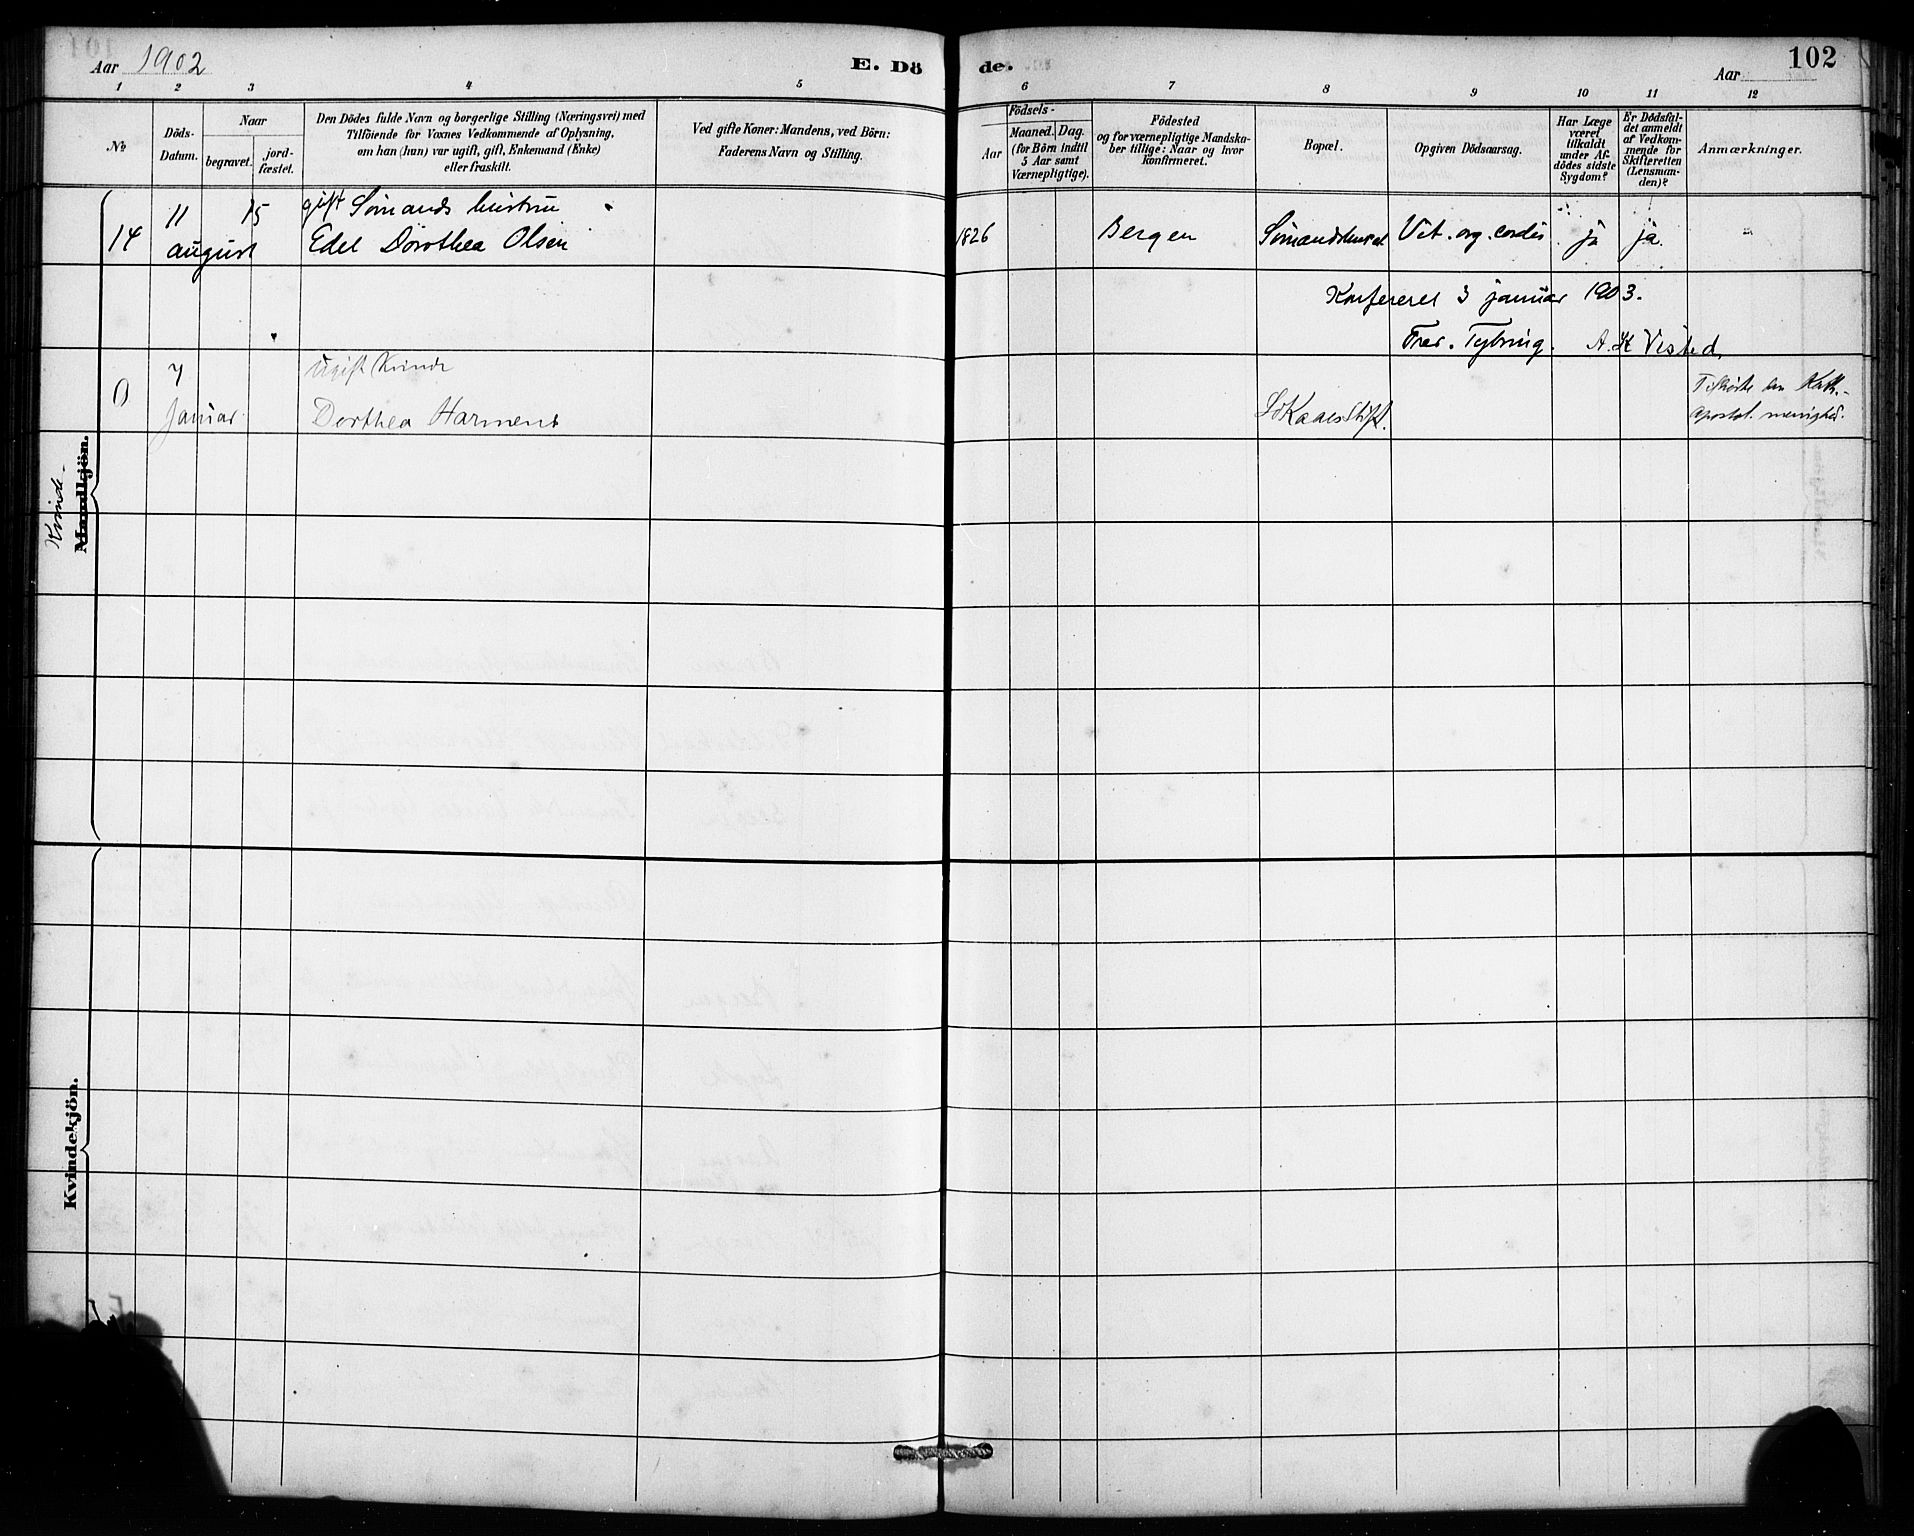 Aar 1902
E. Dö
de.
Aar
102
1 2 3 4 5 6 7 8 9 10 11 12
№
Döds-
Datum.
Naar
begravet.
jord-
fæstet.
Den Dödes fulde Navn og borgerlige Stilling (Næringsvei) med
Tilföiende for Voxnes Vedkommende af Oplysning,
om han (hun) var ugift, gift, Enkemand (Enke)
eller fraskilt.
Ved gifte Koner: Mandens, ved Börn:
Faderens Navn og Stilling.
Födsels-
Aar
Maaned.
Dag.
(for Börn indtil
5 Aar samt
Værnepligtige).
Födested
og for værnepligtige Mandska-
ber tillige: Naar og hvor
konfirmeret.
Bopæl.
Opgiven Dödsaarsag.
Har Læge
været
tilkaldt
under Af-
dödes sidste
Sygdom?
Er Dödsfal-
det anmeldt
af Vedkom-
mende for
Skifteretten
(Lensman-
den)?
Anmærkninger.
14
11
august
15
gift Sømands hustru
Edel Dorothea Olsen
1826
Bergen
Vit. org. cordis
ja
ja.
"
3 januar 1903.
Tybring. A. K Visted.
0
7
Januar
Ugift Kvinde
Dorthea Harmens
Stift.
Apostol. menighed.
Kvinde-
Mandkjön.
Kvindekjön.